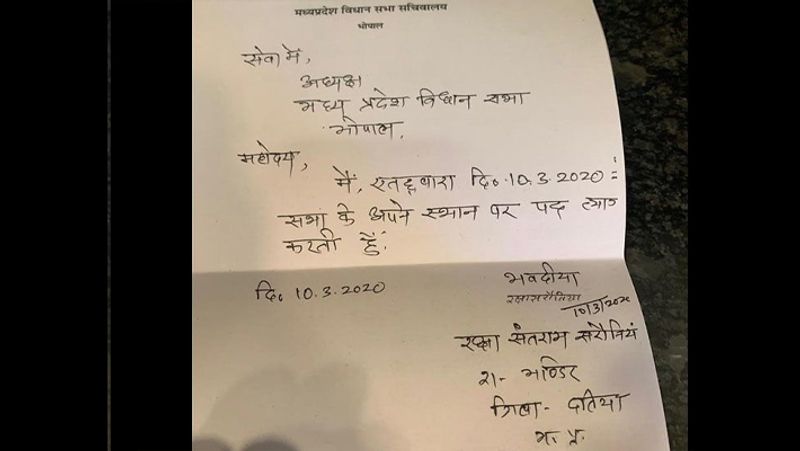 मध्यप्रदेश विधान सभा सचिवालय
भोपाल
सेवा में,
अध्यक्ष
मध्य प्रदेश विधान सभा
भोपाल,
महोदय,
मैं, एतद्द्वारा दि० 10.3.2020 =
सभा के अपने स्थान पर पद त्याग
करती हूँ.
भवदीया
दि० 10.3.2020
रक्षा सरौनिया
10/3/2020
रक्षा संतराम सरौनियां
भाण्डेर
जिला - दतिया
म. प्र.